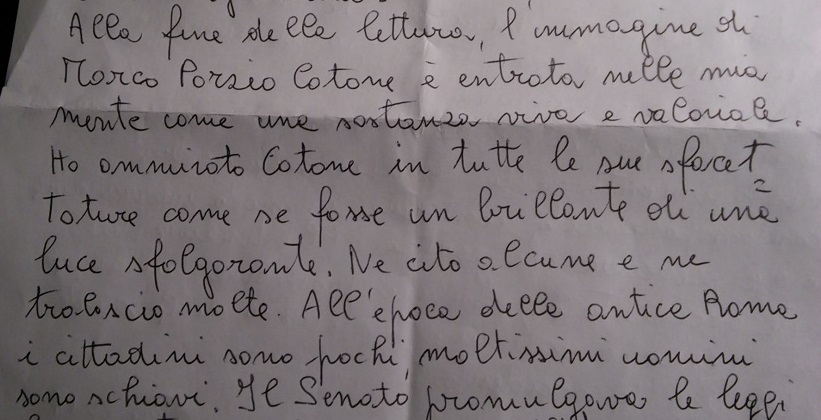 Alla fine della lettura, l'immagine di
Marco Porzio Catone è entrata nella mia
mente come una sostanza viva e valoriale.
Ho ammirato Catone in tutte le sue sfacet
tature come se fosse un brillante di una
luce sfolgorante. Ne cito alcune e ne
tralascio molte. All'epoca della antica Roma
i cittadini sono pochi, moltissimi uomini
sono schiavi. Il Senato promulgava le leggi